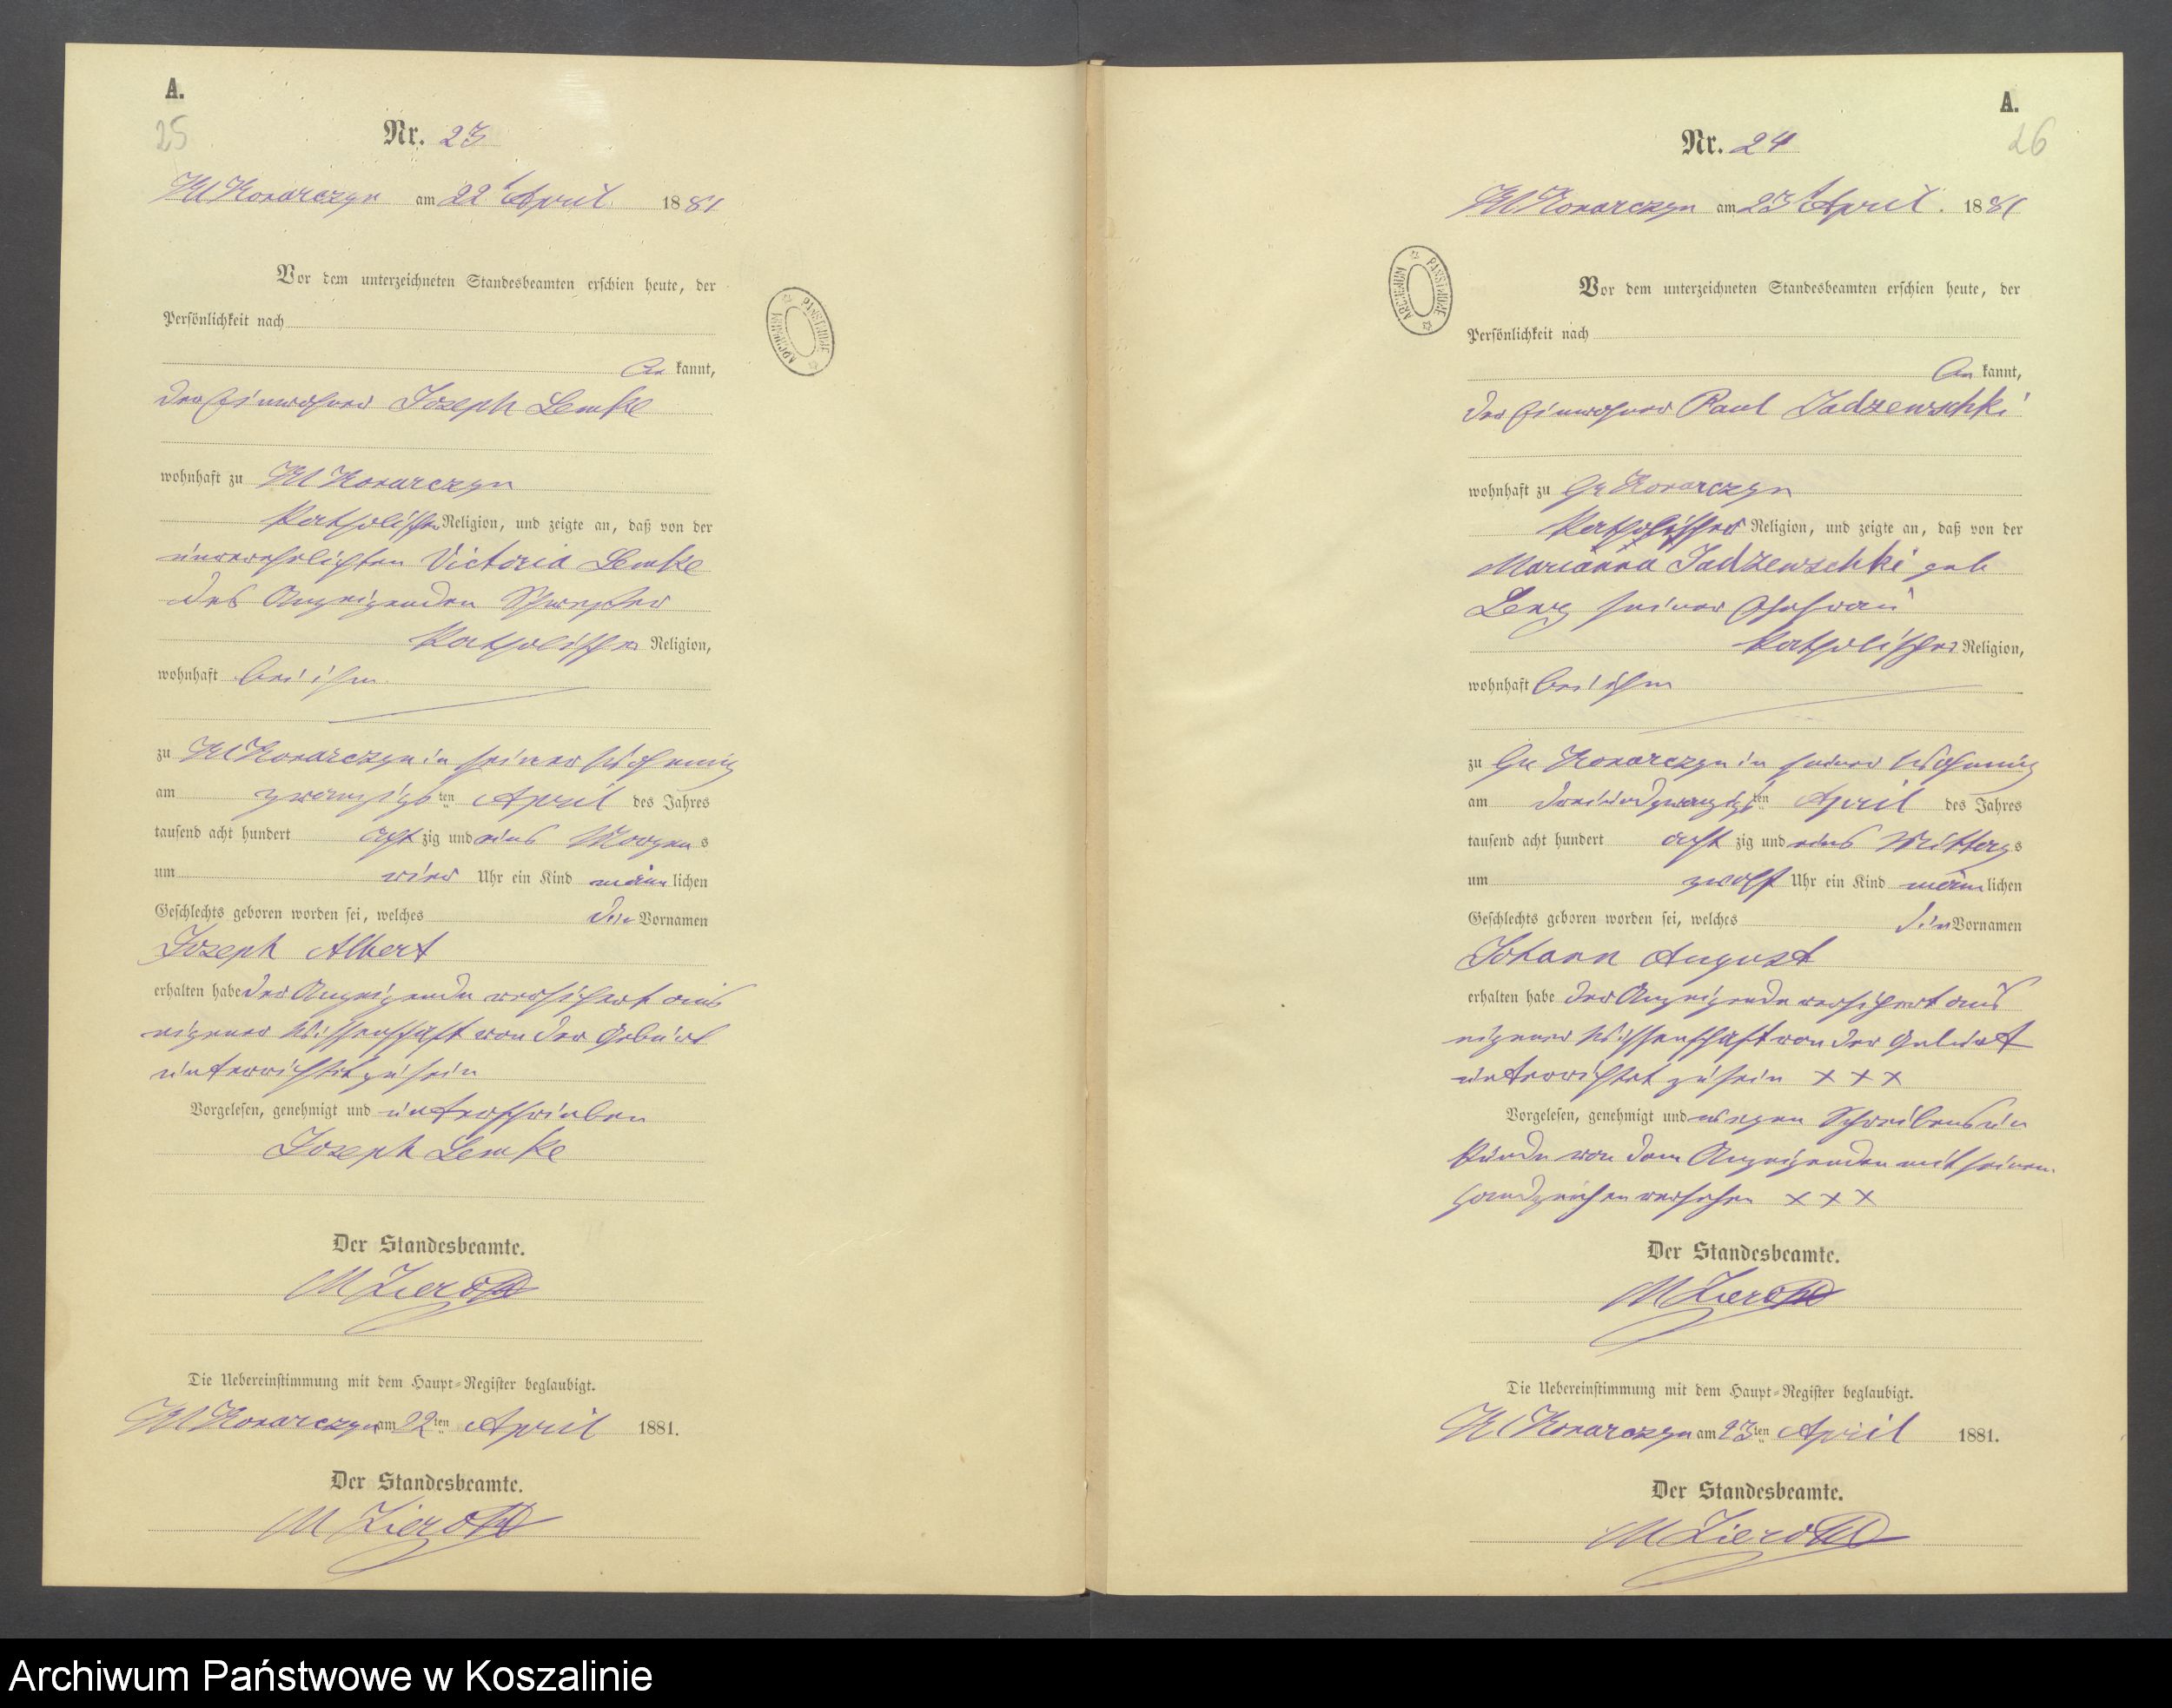 A.
25
Nr. 23
Kl Konarczyn am 22 April 1881
Vor dem unterzeichneten Standesbeamten erschien heute, der
Persönlichkeit nach
be kannt,
der Einwohner Joseph Lemke
wohnhaft zu Kl Konarczyn
katholischer Religion, und zeigte an, daß von der
unverehelichten Victoria Lemke
des Anzeigenden Schwester
katholischer Religion,
wohnhaft bei ihm
zu Kl Konarczyn in seiner Wohnung
am zwanzigsten April des Jahres
tausend acht hundert achtzig und eins Morgens
um vier Uhr ein Kind männlichen
Geschlechts geboren worden sei, welches den Vornamen
Joseph Albert
erhalten habe der Anzeigende versichert aus
eigener Wissenschaft von der Geburt
unterrichtet zu sein
Vorgelesen, genehmigt und unterschrieben
Joseph Lemke
Der Standesbeamte.
Die Uebereinstimmung mit dem Haupt-Register beglaubigt.
Kl Konarczyn am 22ten April 1881.
Der Standesbeamte.
A.
26
Nr. 24
Kl Konarczyn am 23 April. 1881
ARCHIWUM PAŃSTWOWE
Vor dem unterzeichneten Standesbeamten erschien heute, der
Persönlichkeit nach
be kannt,
der Einwohner Paul Jadzewschki
wohnhaft zu Gr Konarczyn
katholischer Religion, und zeigte an, daß von der
Marianna Jadzewschki geb
seiner Ehefrau
katholischer Religion,
wohnhaft bei ihm
zu Gr Konarczyn in seiner Wohnung
am dreiundzwanzigsten April des Jahres
tausend acht hundert achtzig und eins Mittags
um zwölf Uhr ein Kind männlichen
Geschlechts geboren worden sei, welches den Vornamen
Johann August
erhalten habe der Anzeigende versichert aus
eigener Wissenschaft von der Geburt
unterrichtet zu sein x x x
Vorgelesen, genehmigt und wegen Schreibensun
kunde von dem Anzeigenden mit seinem
Handzeichen versehen x x x
Der Standesbeamte.
Die Uebereinstimmung mit dem Haupt-Register beglaubigt.
Kl Konarczyn am 23ten April 1881.
Der Standesbeamte.
Archiwum Państwowe w Koszalinie